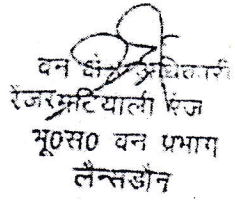 वन क्षेत्राधिकारी
रेंजर मटियाली रेंज
भू०स० वन प्रभाग
लैन्सडौन